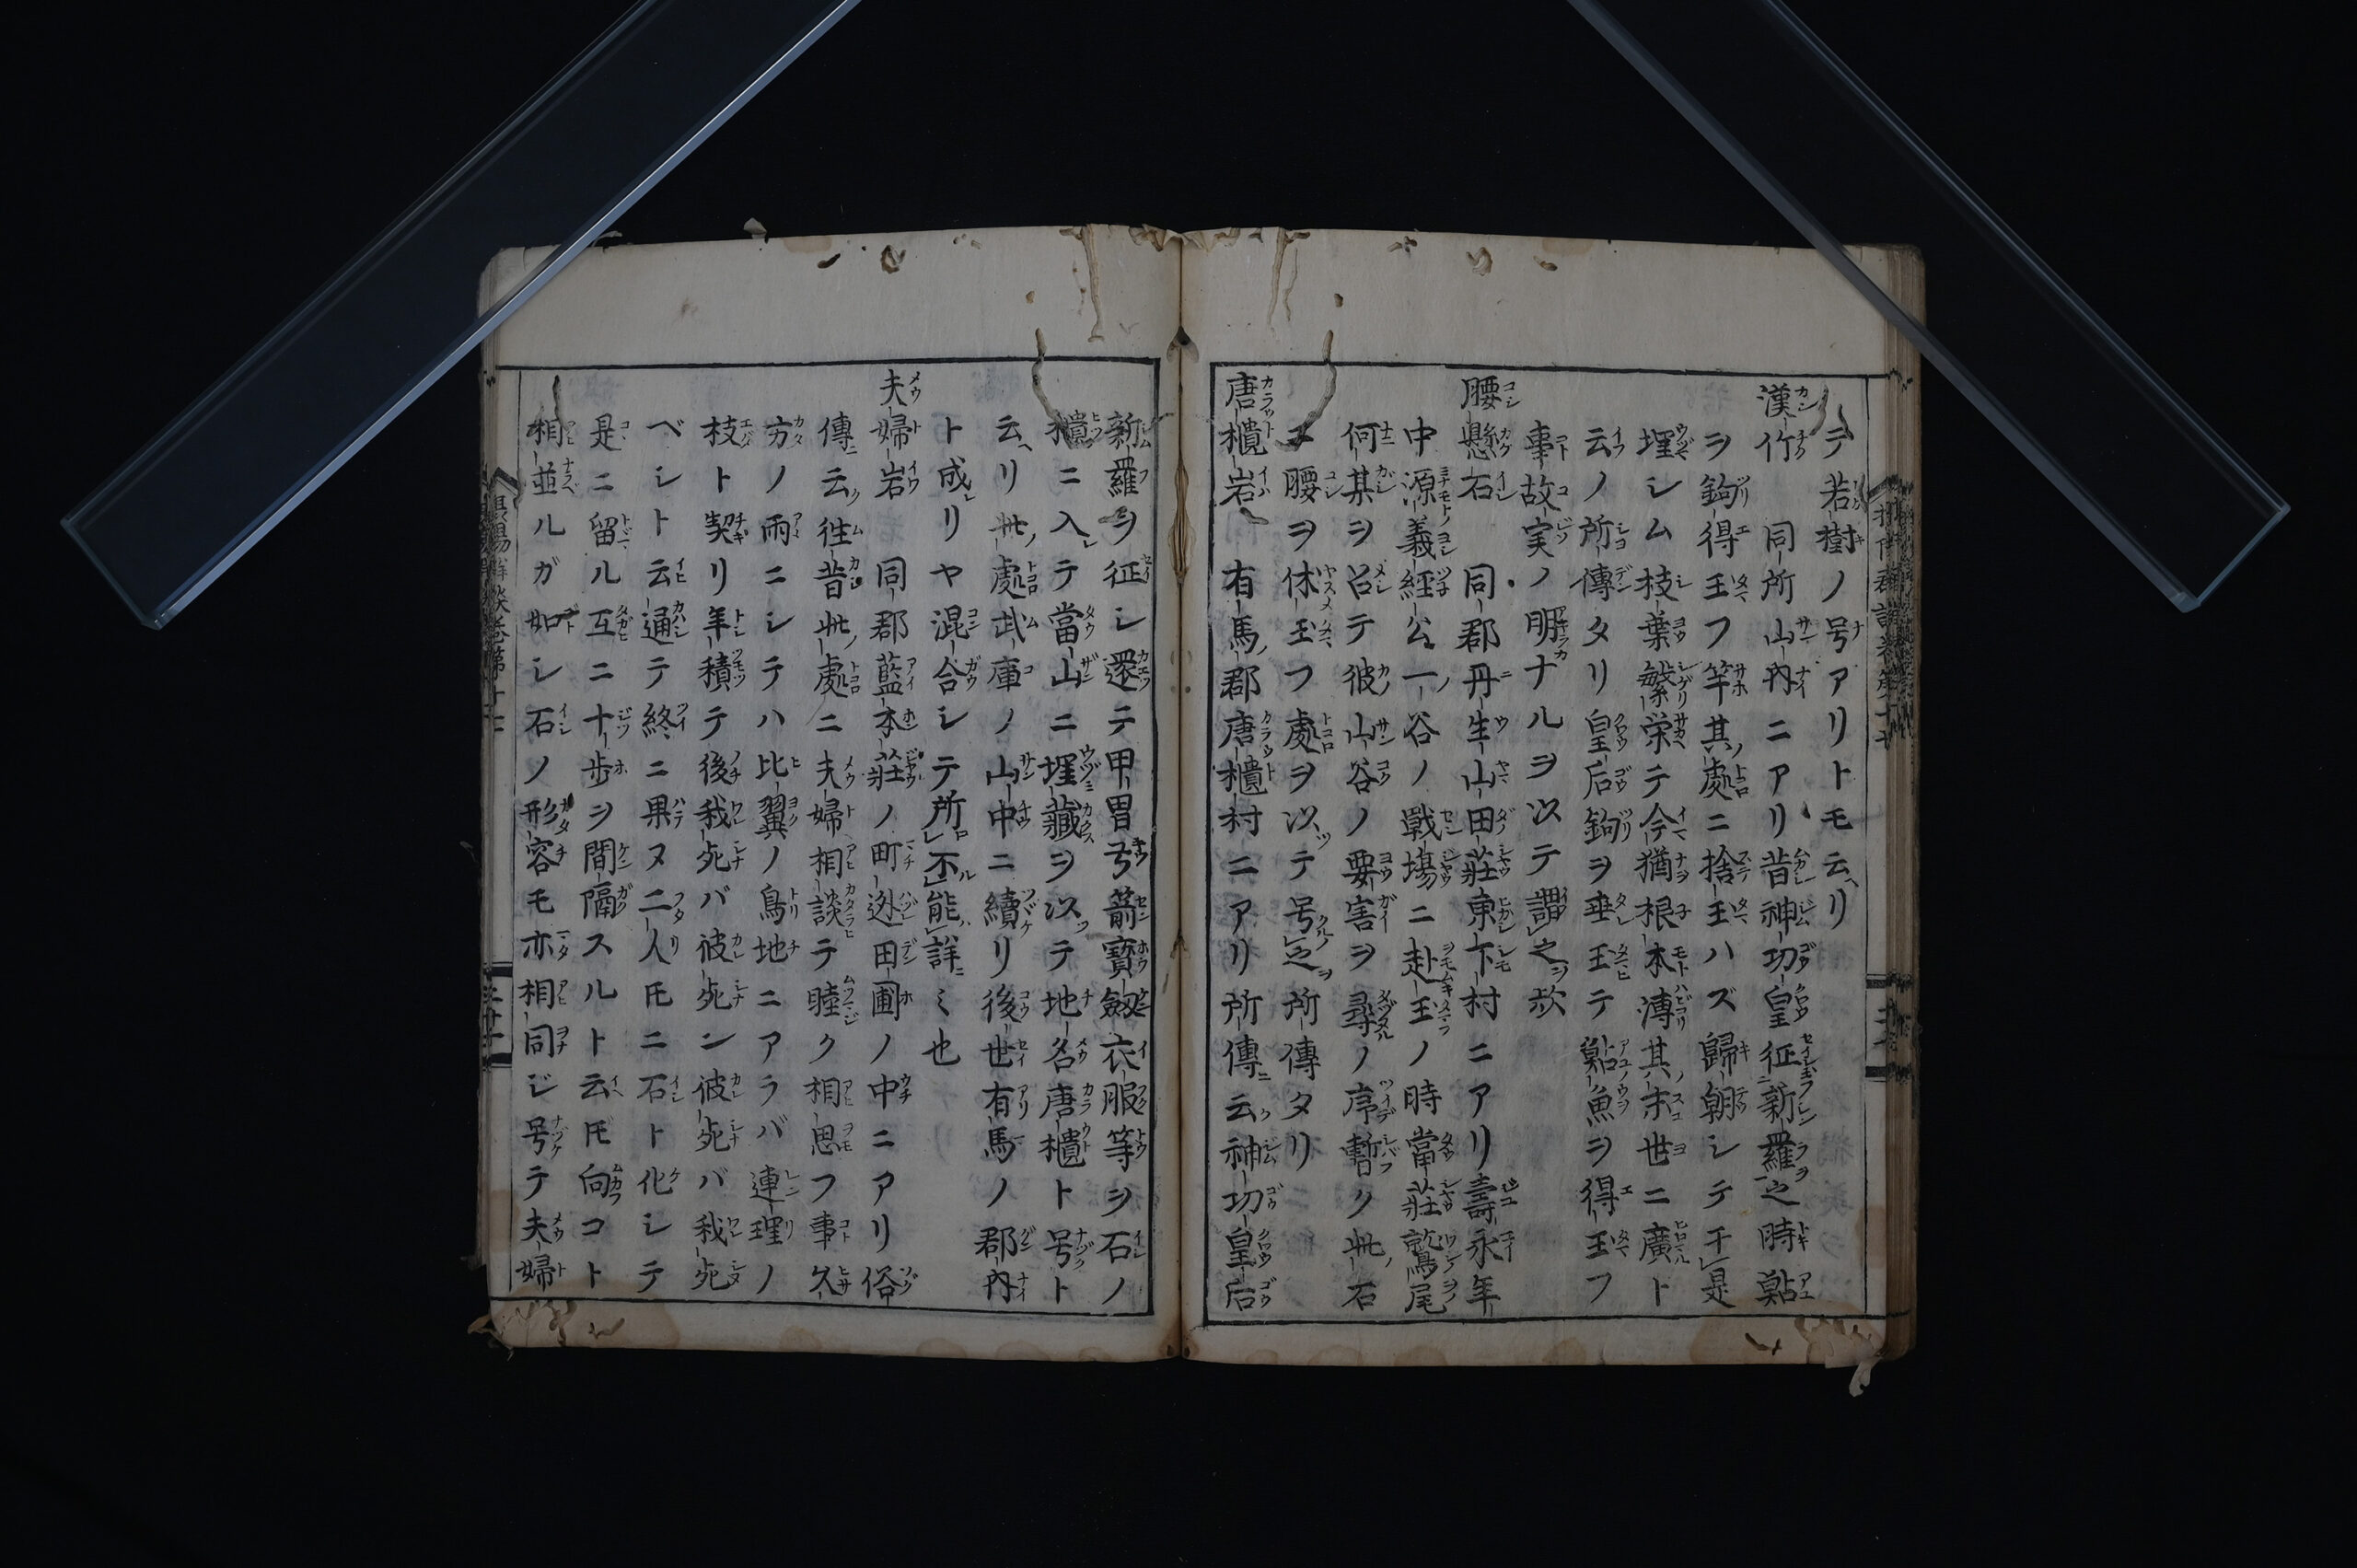 テ若樹ノ号アリトモ云ヘリ
漢竹 同所山内ニアリ昔神功皇征新羅之時鮎
ヲ鉤得玉フ竿其処ニ捨玉ハズ歸朝シテ于是
埋シム枝葉繁栄テ今猶根本溥其末世ニ廣ト
云ノ所傳タリ皇后鉤ヲ垂玉テ鮎魚ヲ得玉フ
事故実ノ明ナルヲ以テ謂之歟
腰懸石 同郡丹生山田莊東下村ニアリ壽永年
中源義經公一ノ谷ノ戰場ニ赴玉ノ時當莊鷲尾
何某ヲ召テ彼山谷ノ要害ヲ尋ノ序暫ク此石
ニ腰ヲ休玉フ處ヲ以テ号之所傳タリ
唐櫃岩 有馬郡唐櫃村ニアリ所傳云神功皇后
新羅ヲ征シ還テ甲冑弓箭寶劔衣服等ヲ石ノ
櫃ニ入テ當山ニ埋藏ヲ以テ地名唐櫃ト号ト
云ヘリ此處武庫ノ山中ニ續リ後世有馬ノ郡内
ト成リヤ混合シテ所不能詳ミ也
夫婦岩 同郡藍本莊ノ町逊田圃ノ中ニアリ俗
傳云徃昔此處ニ夫婦相談テ睦ク相思フ事久
方ノ雨ニシテハ比翼ノ鳥地ニアラバ連理ノ
枝ト契リ年積テ後我死バ彼死ン彼死バ我死
ベシト云通テ終ニ果ヌ二人 ニ石ト化シテ
是ニ留ル互ニ十歩ヲ間隔スルト云 向コト
相並ルガ如シ石ノ形容モ亦相同ジ号テ夫婦